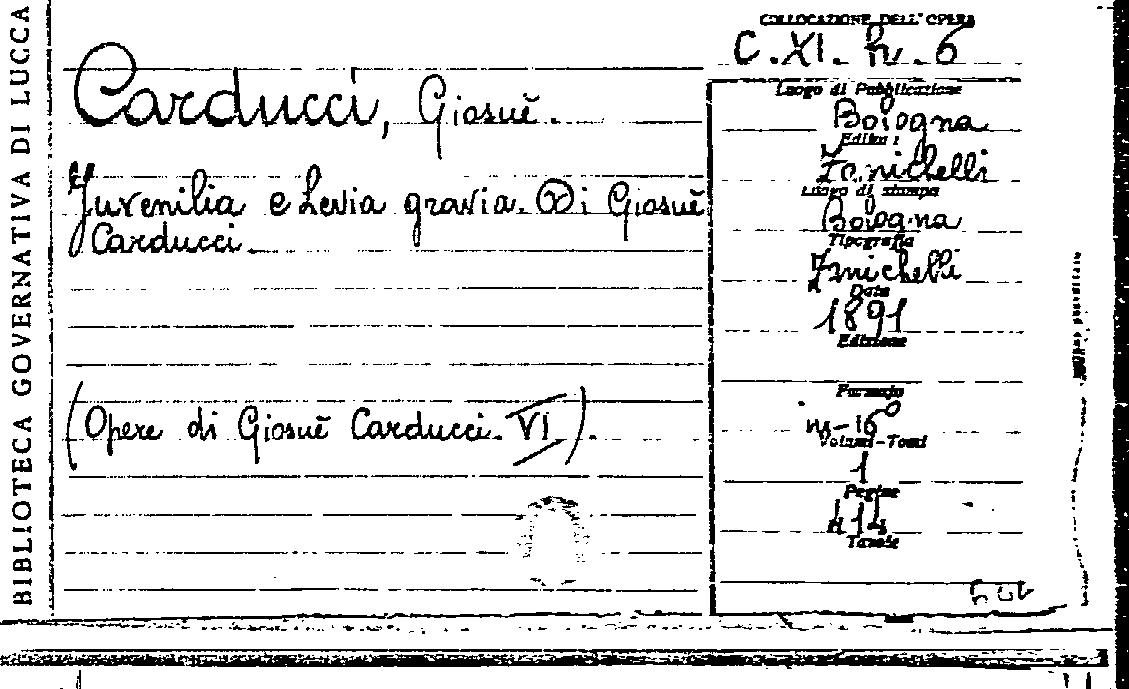 BIBLIOTECA GOVERNATIVA DI LUCCA
Carducci, Giosuè.
Juvenilia e Levia gravia. Di Giosuè
Carducci.
(Opere di Giosuè Carducci. VI).
COLLOCAZIONE DELL'OPERA
C.XI. h. 6
Luogo di Pubblicazione
Bologna
Editore
Zanichelli
Luogo di stampa
Bologna
Tipografia
Zanichelli
Data
1891
Edizione
Formato
in-16°
Volumi-Tomi
1
Pagine
414
Tavole